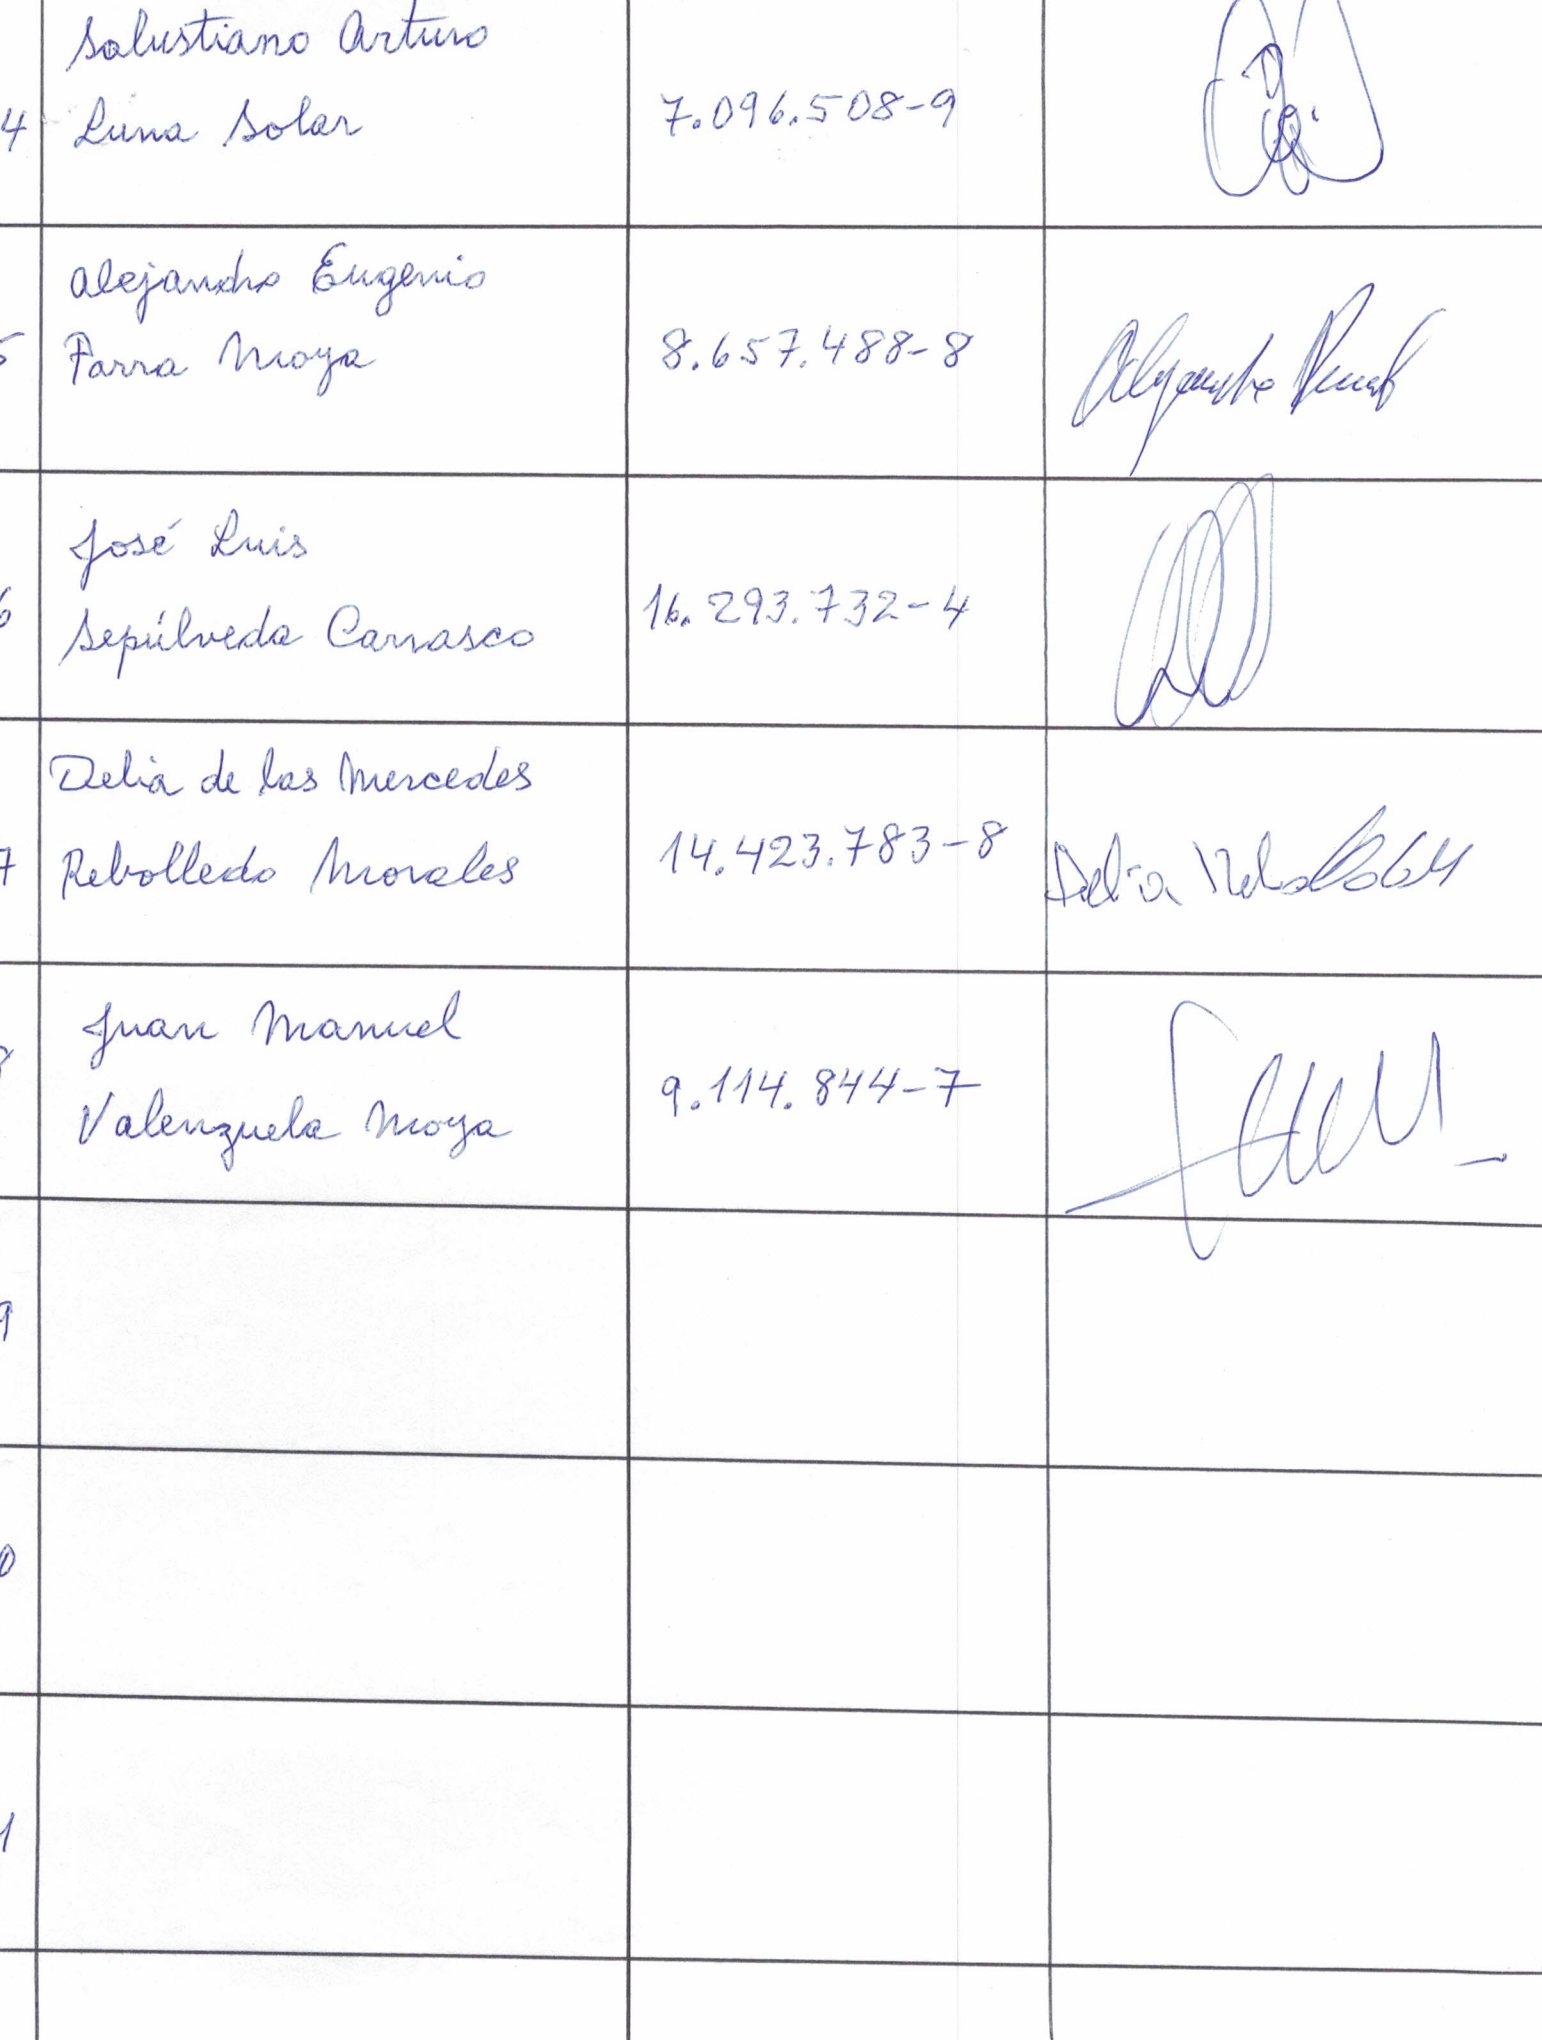 Salustiano Arturo
4 Luna Solar 7.096.508-9
Alejandro Eugenio
5 Parra Moya 8.657.488-8
José Luis
6 Sepúlveda Carrasco 16.293.732-4
Delia de las Mercedes
7 Rebolledo Morales 14.423.783-8
Juan Manuel
8 Valenzuela Moya 9.114.844-7
9
0
1